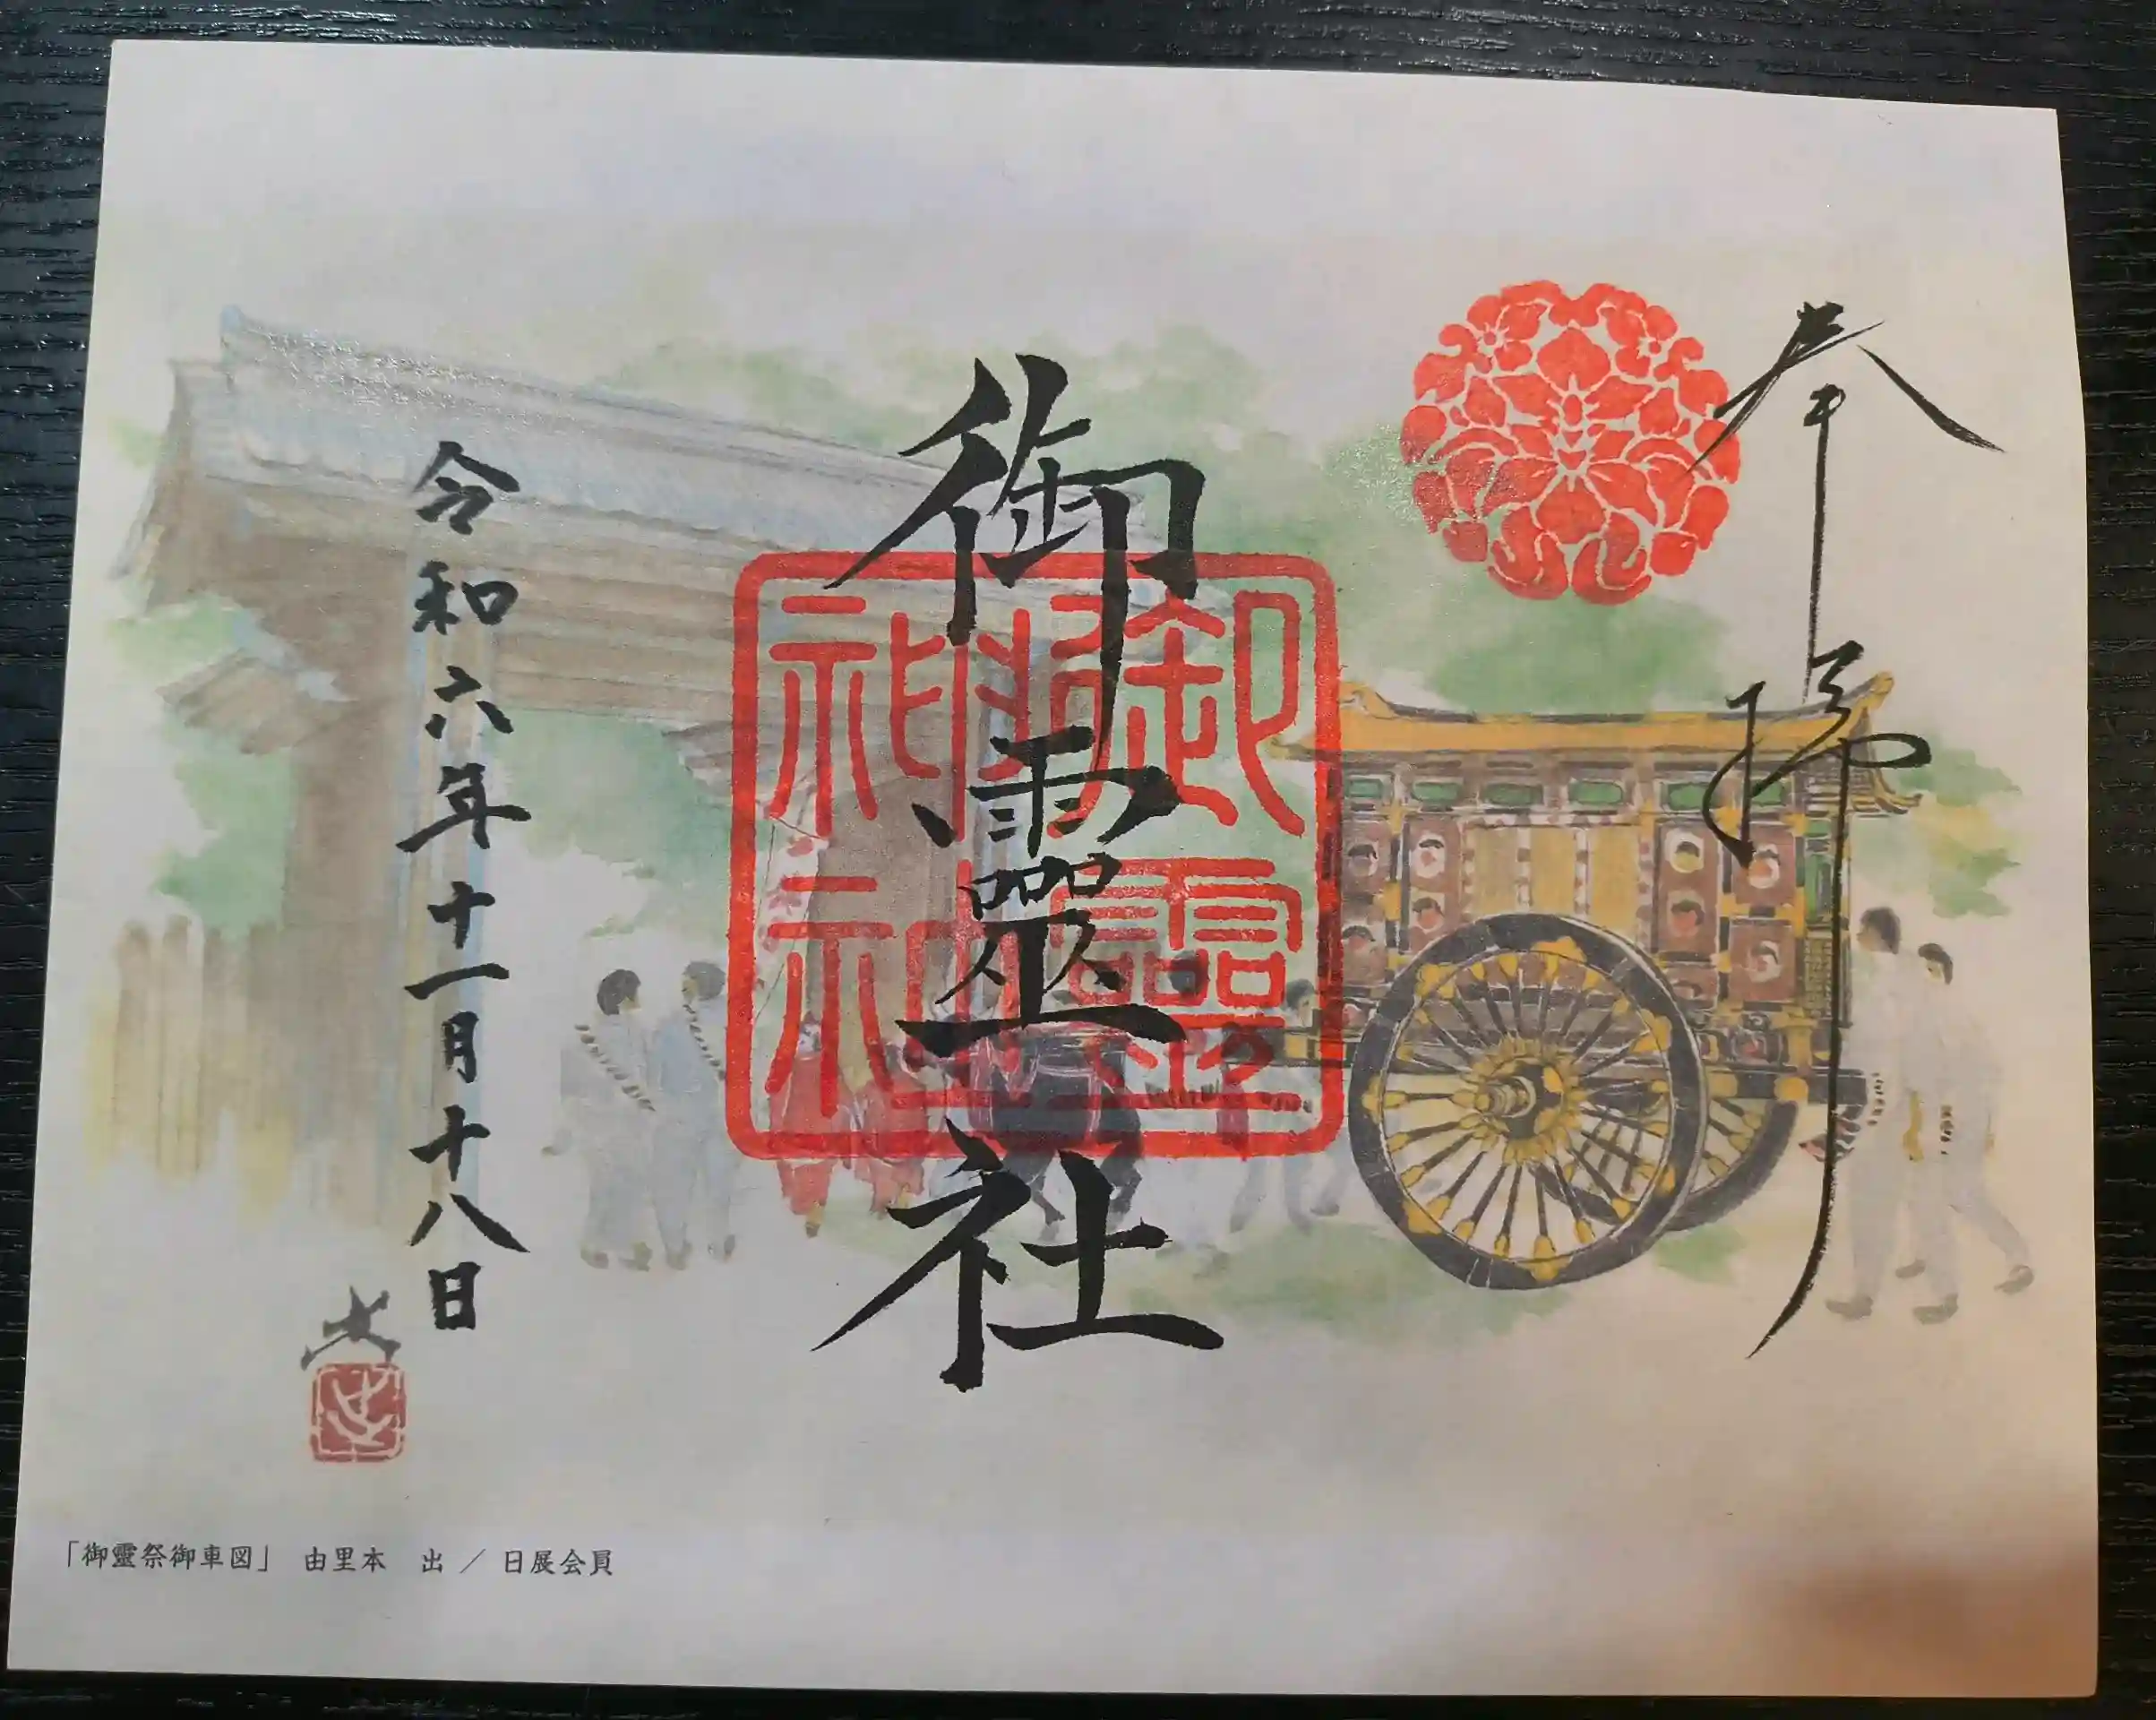 奉拝
御靈社
御靈神社
令和六年十一月十八日
「御靈祭御車図」　由里本　出 ／ 日展会員